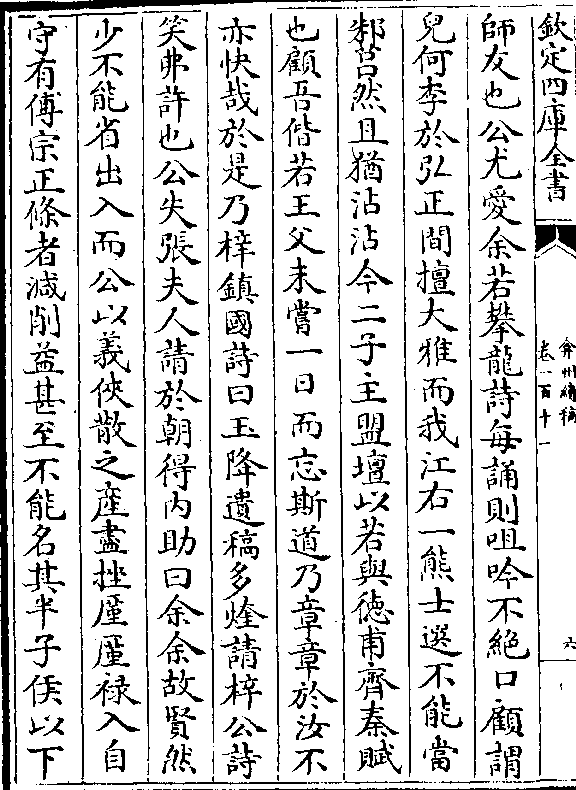 欽定四庫全書
弇州續稿
卷一百十一
六
師友也公尤愛余若攀龍詩每誦則咀吟不絕口顧謂
兒何李於弘正間擅大雅而我江右一熊士選不能當
邾莒然且猶沾沾今二子主盟壇以若與徳甫齊秦賦
也顧吾偕若王父未嘗一日而忘斯道乃章章於汝不
亦快哉於是乃梓鎮國詩曰玉降遺稿多燈請梓公詩
笑弗許也公失張夫人請於朝得内助曰余余故賢然
少不能省出入而公以義俠散之産盡挫厪厪禄入自
守有傅宗正條者減削益甚至不能名其半子侯以下